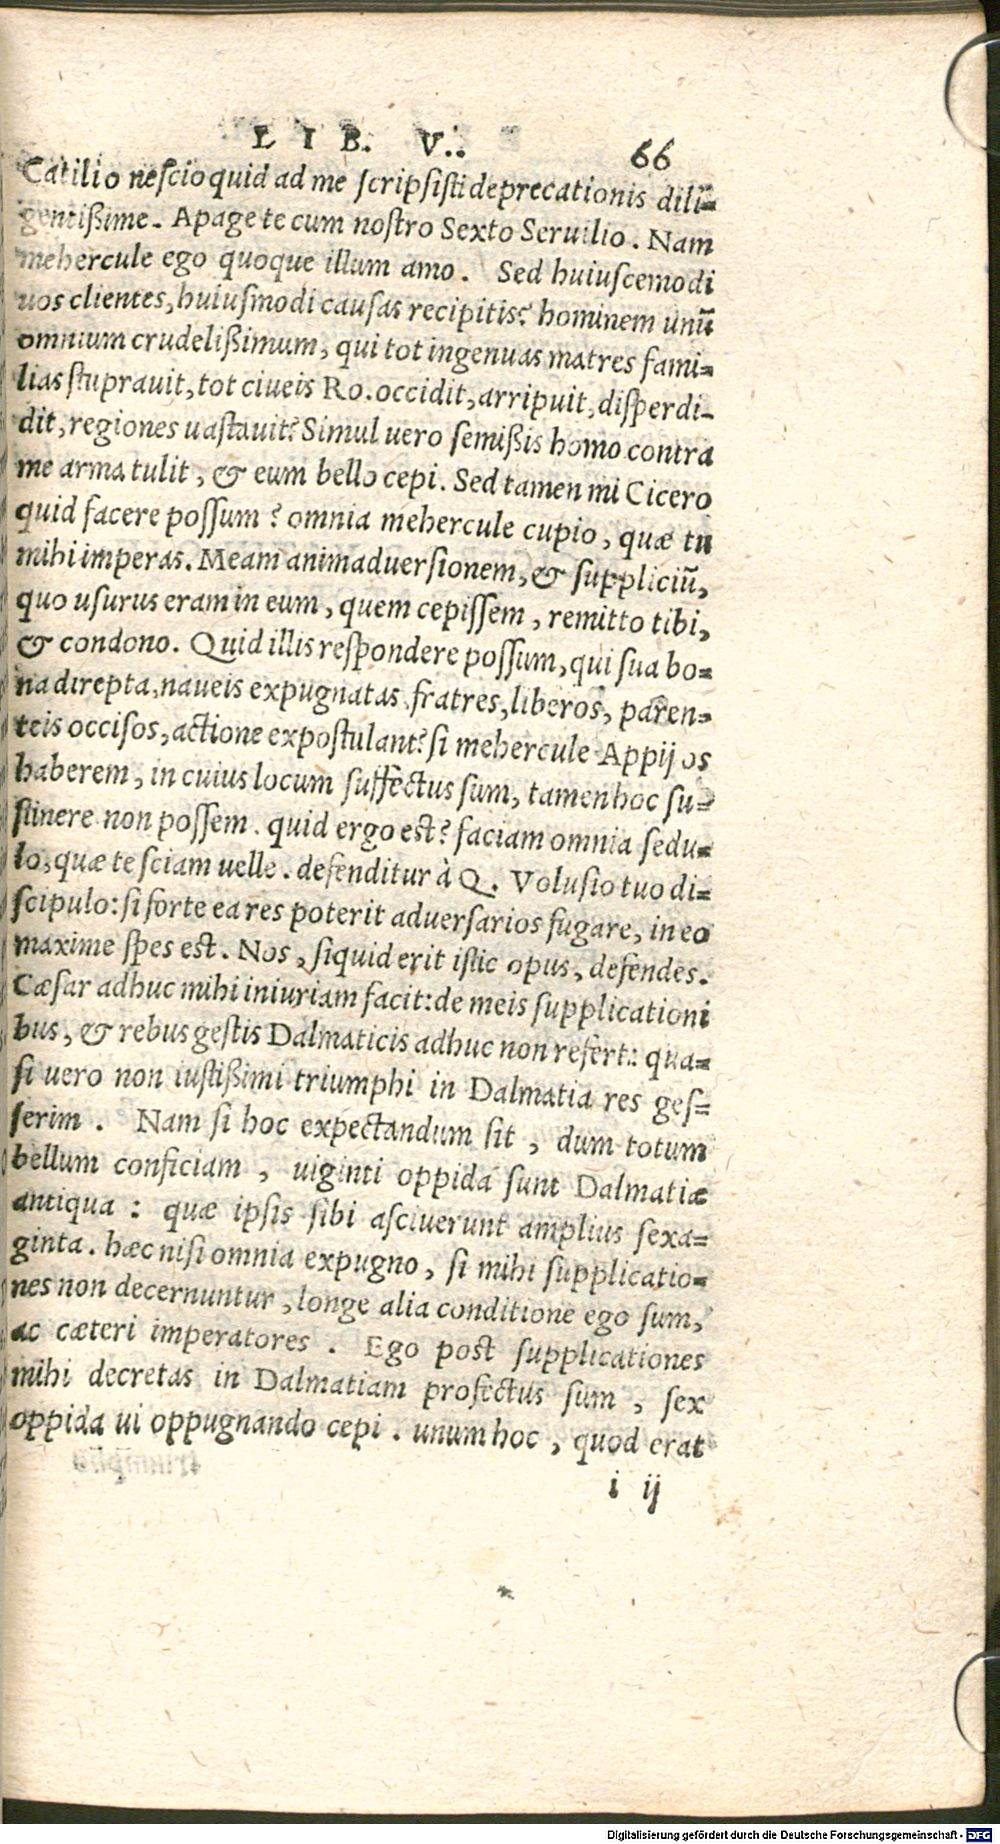 LIB. V.. 66
Catilio nescio quid ad me scripsisti deprecationis dilĩ=
gentißime. Apage te cum nostro Sexto Seruilio. Nam
mehercule ego quoque illum amo. Sed huiuscemodi
uos clientes, huiusmodi causas recipitis? hominem unũ
omnium crudelißimum, qui tot ingenuas matres fami=
lias stuprauit, tot ciueis Ro. occidit, arripuit, disperdi-
dit, regiones uastauit? Simul uero semißis homo contra
me arma tulit, & eum bello cepi. Sed tamen mi Cicero
quid facere possum? omnia mehercule cupio, quæ tu
mihi imperas. Meam animaduersionem, & suppliciũ,
quo usurus eram in eum, quem cepissem, remitto tibi,
& condono. Quid illis respondere possum, qui sua bo=
na direpta, naueis expugnatas, fratres, liberos, paren=
teis occisos, actione expostulant? si mehercule Appij os
haberem, in cuius locum suffectus sum, tamen hoc su=
stinere non possem. quid ergo est? faciam omnia sedu=
lo, quæ te sciam uelle. defenditur à Q. Volusio tuo di=
scipulo: si forte ea res poterit aduersarios fugare, in eo
maxime spes est. Nos, siquid erit istic opus, defendes.
Cæsar adhuc mihi iniuriam facit: de meis supplicationi
bus, & rebus gestis Dalmaticis adhuc non refert.: qua=
si uero non iustißimi triumphi in Dalmatia res ges=
serim. Nam si hoc expectandum sit, dum totum
bellum conficiam, uiginti oppida sunt Dalmatiæ
antiqua: quæ ipsis sibi asciuerunt amplius sexa=
ginta. hæc nisi omnia expugno, si mihi supplicatio=
nes non decernuntur, longe alia conditione ego sum,
ac cæteri imperatores. Ego post supplicationes
mihi decretas in Dalmatiam profectus sum, sex
oppida ui oppugnando cepi. unum hoc, quod erat
i ij
Digitalisierung gefördert durch die Deutsche Forschungsgemeinschaft - DFG